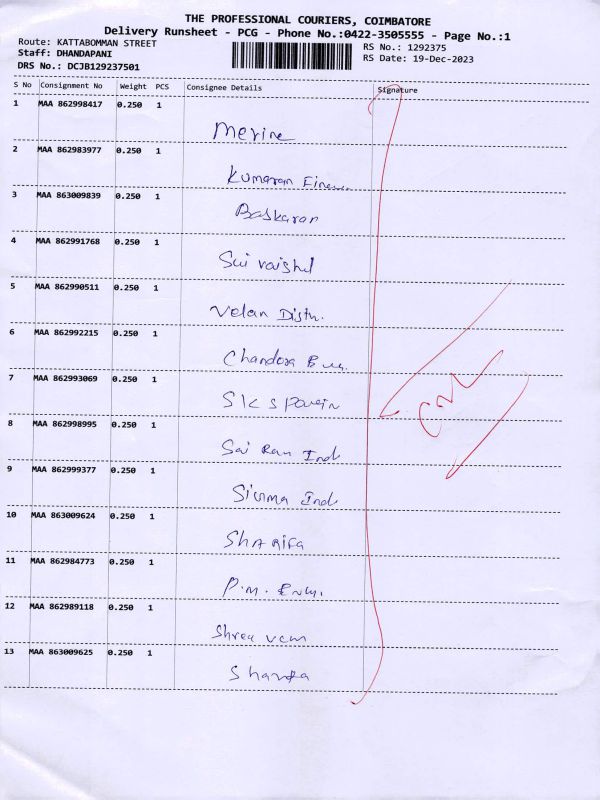 THE PROFESSIONAL COURIERS, COIMBATORE
Delivery Runsheet - PCG - Phone No.:0422-3505555 - Page No.:1
Route: KATTABOMMAN STREET
RS No.: 1292375
Staff: DHANDAPANI
RS Date: 19-Dec-2023
DRS No.: DCJB129237501
S No Consignment No Weight PCS Consignee Details Signature
1 MAA 862998417 0.250 1
Merine
2 MAA 862983977 0.250 1
Kumaran
3 MAA 863009839 0.250 1
Baskaran
4 MAA 862991768 0.250 1
5 MAA 862990511 0.250 1
Velan Distri.
6 MAA 862992215 0.250 1
7 MAA 862993069 0.250 1
S K S
8 MAA 862998995 0.250 1
Sai Ram Ind
9 MAA 862999377 0.250 1
Ind
10 MAA 863009624 0.250 1
SHARIFA
11 MAA 862984773 0.250 1
P.M.
12 MAA 862989118 0.250 1
Shree vem
13 MAA 863009625 0.250 1